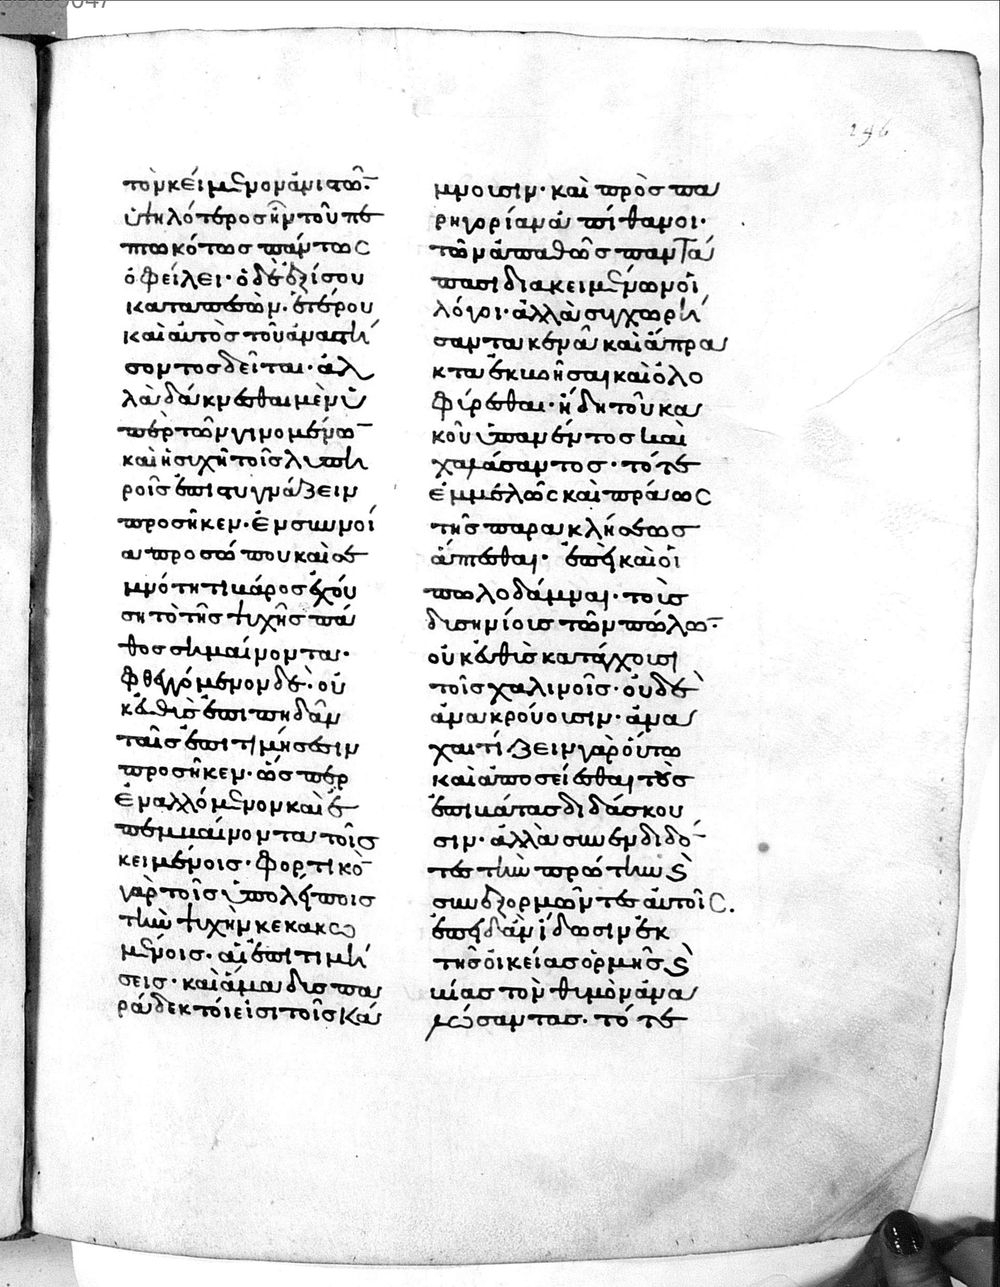 196
τὸν κείμενον ἀνιστῶν
ὑψηλότερος ἢν τοῦ πε
πτωκότως πάντως
ὀφείλει· ὁ δὲ ἐξίσου
καταπεσὼν· ἑτέρου
καὶ αὐτὸς τοῦ ἀναστή
σοντος δεῖται· ἀλ
λὰ δάκνεσθαι μὲν ὑ
πὲρ τῶν γινομένων
καὶ ἡσυχῆ τοῖς λυπη
ροῖς ἐπιστυγνάζειν
προσῆκεν· ἐν συννοί
α προσώπου καὶ σε
μνότητι κάρος ἐχού
ση τὸ τῆς ψυχῆς πά
θος σημαίνοντα·
φθεγγόμενον δὲ· οὐ
κ εὐθὺς ἐπιπηδᾶν
ταῖς ἐπιτιμήσεσιν
προσῆκεν· ὥσπερ
ἐναλλόμενον καὶ ἐ
πεμβαίνοντα τοῖς
κειμένοις· φορτικὸν
γὰρ τοῖς ὑπολύποις
τὴν ψυχὴν κεκακω
μένοις· αἱ ἐπιτιμή
σεις· καὶ ἅμα δυσπα
ράδεκτοί εἰσι τοῖς κά
μνουσιν· καὶ πρὸς πα
ρηγορίαν ἀπίθανοι·
τῶν ἀπαθῶς παντά
πασι διακειμένων οἱ
λόγοι· ἀλλὰ συγχωρή
σαντα κενὰ καὶ ἄπρα
κτα ἐκκινῆσαι καὶ ὀλο
φύρεσθαι· ἤδη τοῦ κα
κοῦ ὑπανέντος καὶ
χαλάσαντος· τότε
ἐμμελῶς καὶ πράως
τῆς παρακλήσεως
ἅπτεσθαι· ἐπεὶ καὶ οἱ
πωλοδάμναι· τοῖς
δυσηνίοις τῶν πώλων·
οὐκ εὐθὺς κατάγχουσι
τοῖς χαλινοῖς· οὐδὲ
ἀνακρούουσιν· ἀνα
χαιτίζειν γὰρ οὕτω
καὶ ἀποσείεσθαι τοὺς
ἐπιβάτας διδάσκου
σιν· ἀλλὰ συνενδιδόν
τες τὴν πρώτην ϗ
συνεξορμῶντες αὐτοῖς.
ἐπειδὰν ἴδωσιν ἐκ
τῆς οἰκείας ὁρμῆς ϗ
βίας τὸν θυμὸν ἀνα
λώσαντας· τότε